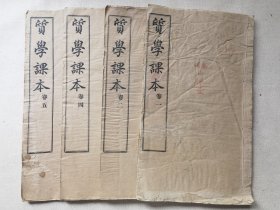 質學課本 卷五
質學課本 卷四
質學課本 卷
質學課本 卷